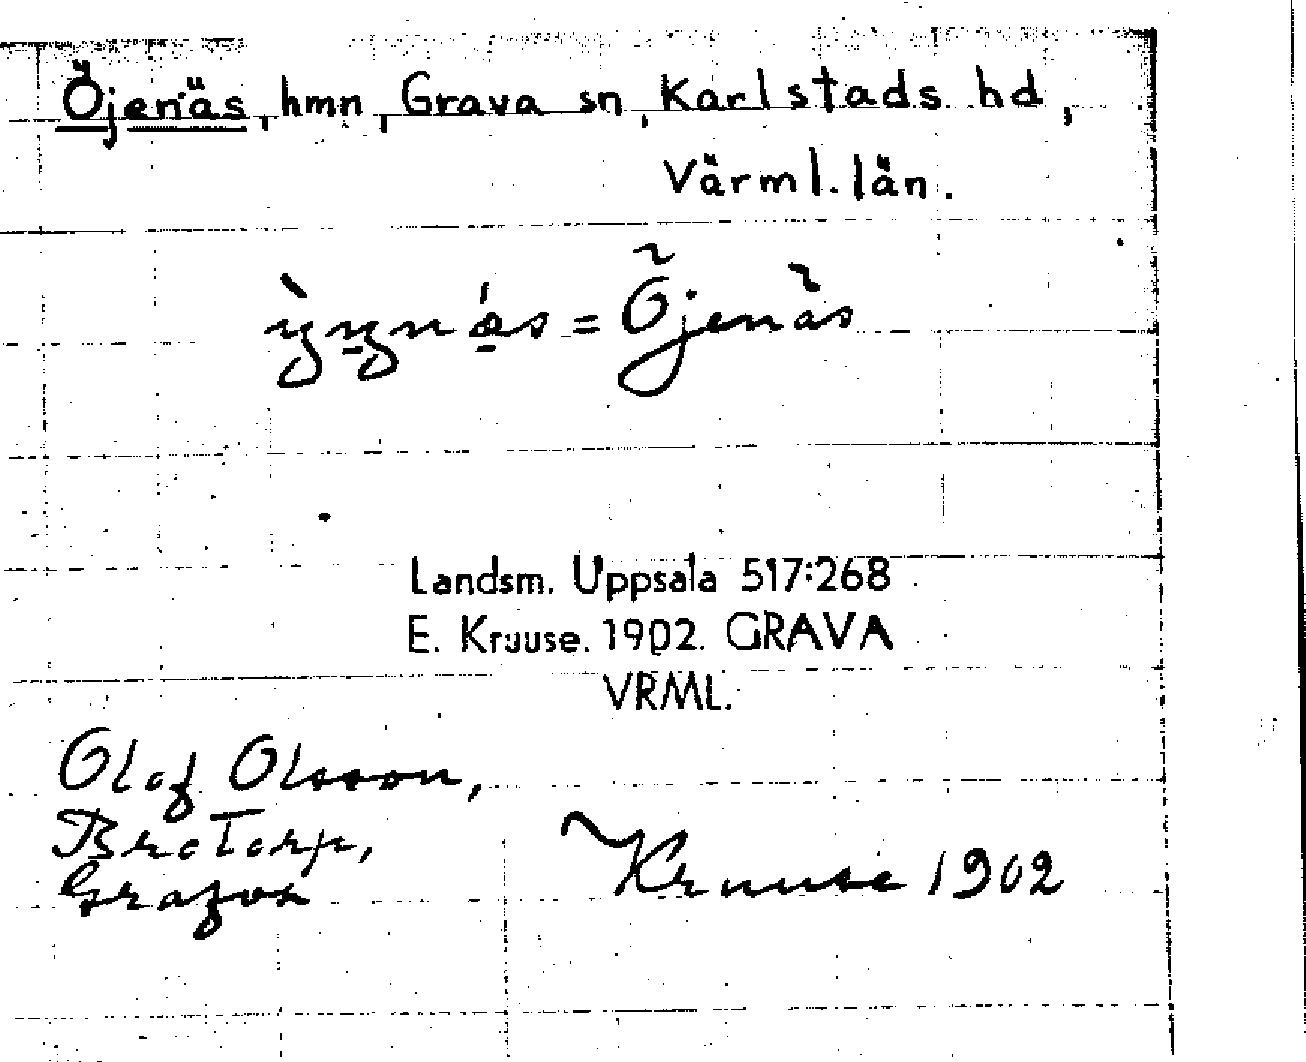 Öjenäs, hmn, Grava sn, Karlstads hd,
Värml. län.
= Öjenäs
Landsm. Uppsala 517:268
E. Krause. 1902. GRAVA
VRML.
Olof Olsson,
Brotorp,
Grafva
Krause 1902